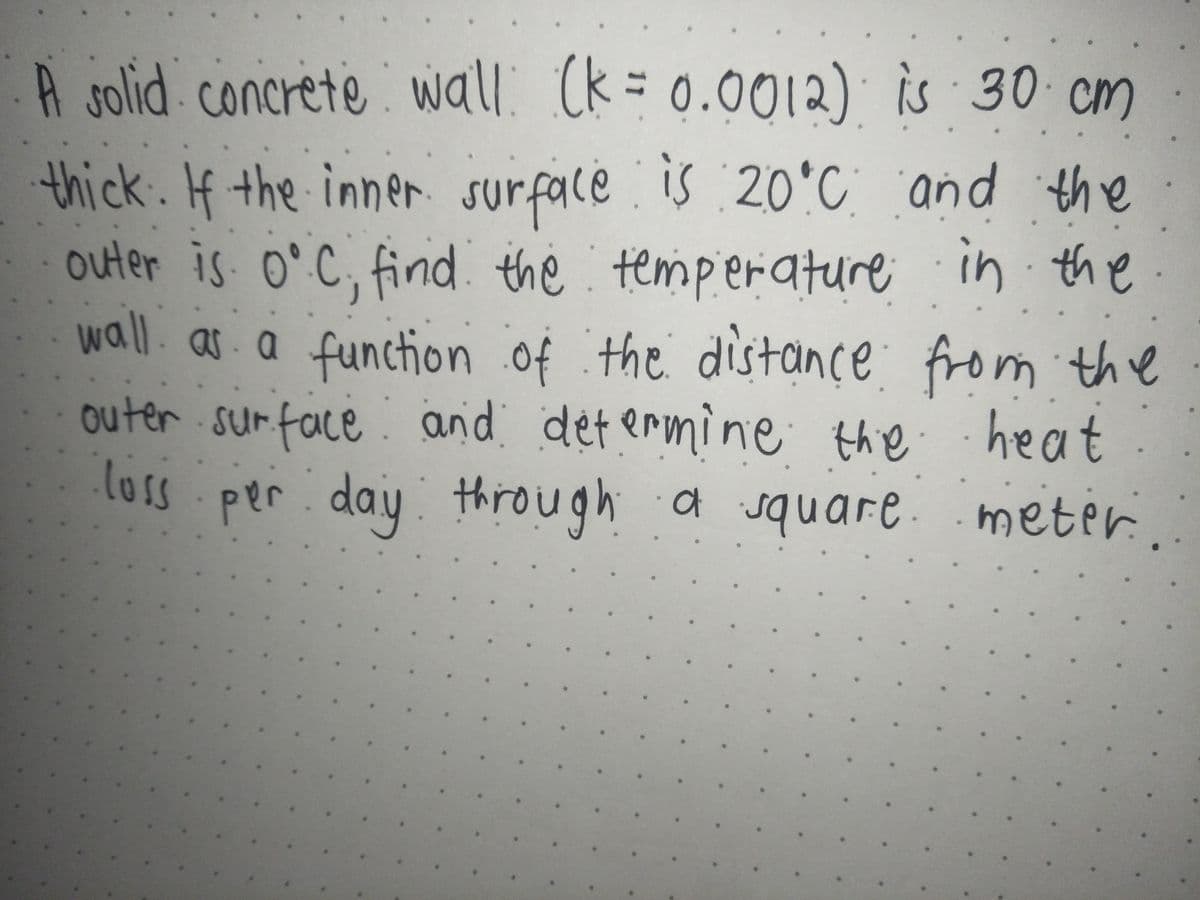 A solid concrete wall (k = 0.0012) is 30 cm
thick. If the inner surface is 20°C and the
outer is 0°C, find the temperature in the
wall as a function of the distance from the
outer surface and determine the heat
loss per day through a square meter.